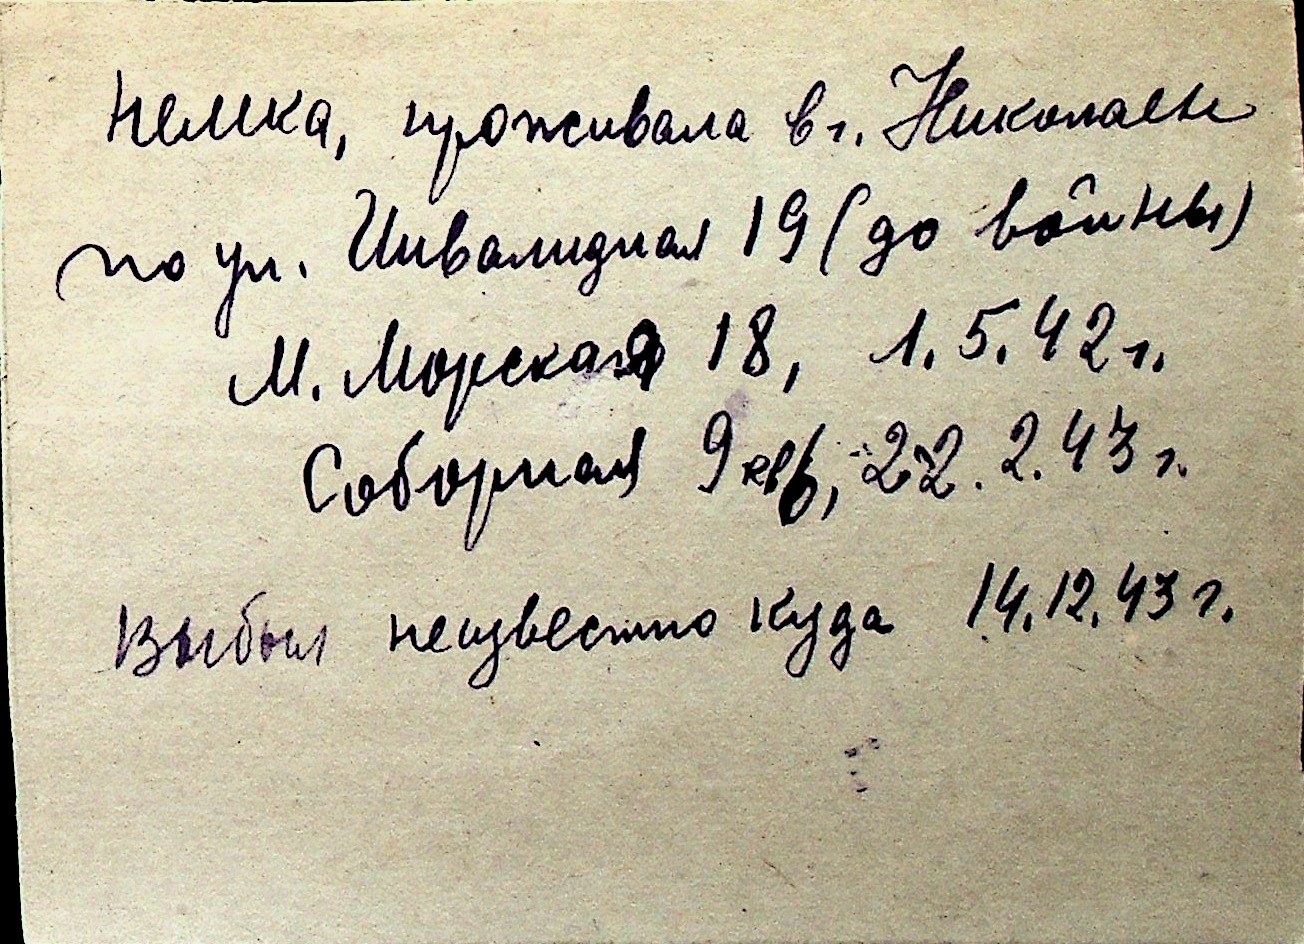 немка, проживала в г. Николаеве
по ул. Инвалидная 19 (до войны)
М. Морская 18, 1.5.42 г.
Соборная 9 кв 6, 22.2.43 г.
Выбыл неизвестно куда 14.12.43 г.